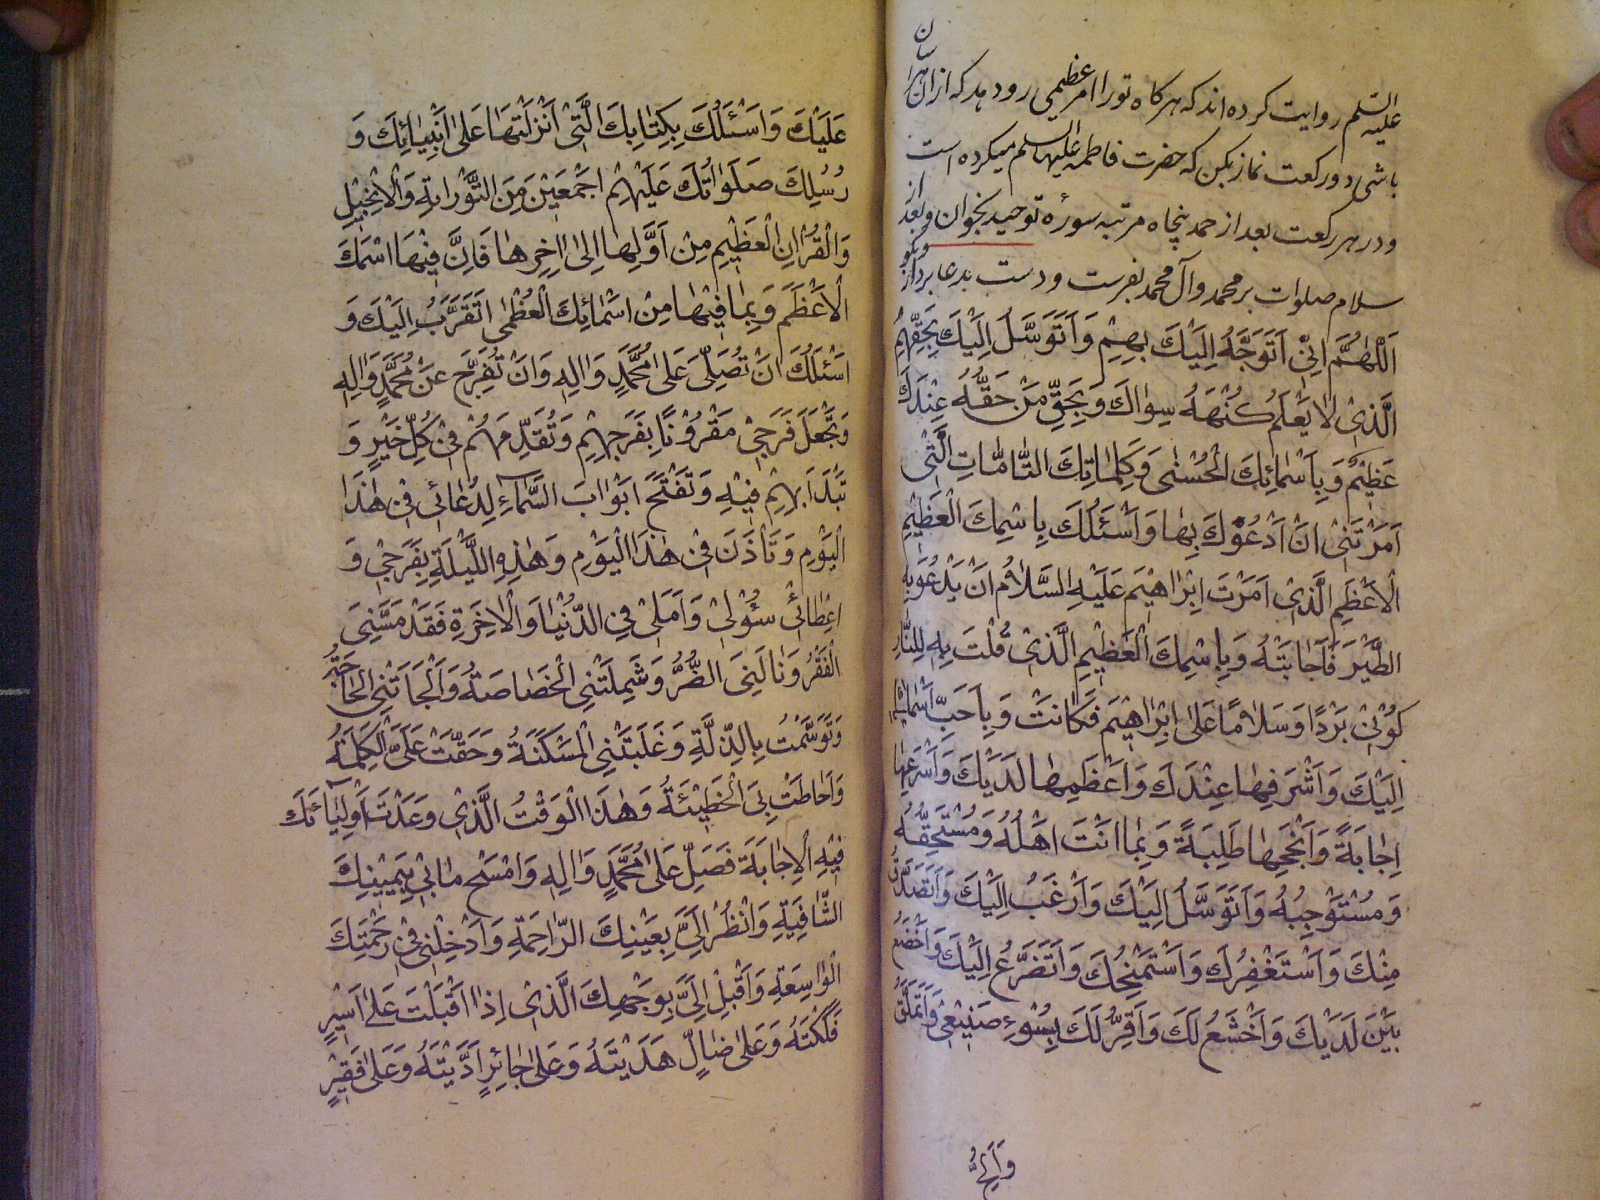 علیه السّلم روایت کرده اند که هر کاه تو را امر عظیمی رو دهد که از ان هراسان
باشی دو رکعت نماز بکن که حضرت فاطمه علیها السلم میکرده است
و در هر رکعت بعد از حمد پنجاه مرتبه سورهٔ توحید بخوان و بعد از
سلام صلوات بر محمد و آل محمد بفرست و دست بدعا بردار و بکو
اَللّٰهُمَّ اِنّیْ اَتَوَجَّهُ اِلَیْكَ بِهِمْ وَ اَتَوَسَّلُ اِلَیْكَ بِحَقِّهِمُ
الَّذیْ لٰا یَعْلَمُ كُنْهَهُ سِوٰاكَ وَ بِحَقِّ مَنْ حَقُّهُ عِنْدَكَ
عَظیْمٌ وَ بِاَسْمٰائِكَ الْحُسْنٰی وَ كَلِمٰاتِكَ التّٰامّٰاتِ الَّتیْ
اَمَرْتَنیْ اَنْ اَدْعُوَكَ بِهٰا وَ اَسْئَلُكَ بِاسْمِكَ الْعَظیْمِ
الْاَعْظَمِ الَّذیْ اَمَرْتَ اِبْرٰاهیْمَ عَلَیْهِ السَّلٰامُ اَنْ یَدْعُوَ بِهِ
الطَّیْرَ فَاَجٰابَتْهُ وَ بِاسْمِكَ الْعَظیْمِ الَّذیْ قُلْتَ بِهِ لِلنّٰارِ
كُوْنیْ بَرْدًا وَ سَلٰامًا عَلٰی اِبْرٰاهیْمَ فَكٰانَتْ وَ بِاَحَبِّ اَسْمٰائِكَ
اِلَیْكَ وَ اَشْرَفِهٰا عِنْدَكَ وَ اَعْظَمِهٰا لَدَیْكَ وَ اَسْرَعِهٰا
اِجٰابَةً وَ اَنْجَحِهٰا طَلِبَةً وَ بِمٰا اَنْتَ اَهْلُهُ وَ مُسْتَحِقُّهُ
وَ مُسْتَوْجِبُهُ وَ اَتَوَسَّلُ اِلَیْكَ وَ اَرْغَبُ اِلَیْكَ وَ اَتَصَدَّقُ
مِنْكَ وَ اَسْتَغْفِرُكَ وَ اَسْتَمْنِحُكَ وَ اَتَضَرَّعُ اِلَیْكَ وَ اَخْضَعُ
بَیْنَ لَدَیْكَ وَ اَخْشَعُ لَكَ وَ اُقِرُّ لَكَ بِسُوْءِ صَنیْعیْ وَ اَتَمَلَّقُ
عَلَیْكَ وَ اَسْئَلُكَ بِكِتٰابِكَ الَّتیْ اَنْزَلْتَهٰا عَلٰی اَنْبِیٰائِكَ وَ
رُسُلِكَ صَلَوٰاتُكَ عَلَیْهِمْ اَجْمَعیْنَ مِنَ التَّوْرٰاةِ وَ الْاِنْجیْلِ
وَ الْقُرْاٰنِ الْعَظیْمِ مِنْ اَوَّلِهٰا اِلٰی اٰخِرِهٰا فَاِنَّ فیْهَا اسْمَكَ
الْاَعْظَمَ وَ بِمٰا فیْهٰا مِنْ اَسْمٰائِكَ الْعُظْمٰی اَتَقَرَّبُ اِلَیْكَ وَ
اَسْئَلُكَ اَنْ تُصَلِّیَ عَلٰی مُحَمَّدٍ وَ اٰلِهِ وَ اَنْ تُفَرِّجَ عَنْ مُحَمَّدٍ وَ اٰلِهِ
وَ تَجْعَلَ فَرَجیْ مَقْرُوْنًا بِفَرَجِهِمْ وَ تُقَدِّمَهُمْ فیْ كُلِّ خَیْرٍ وَ
تَبْدَاَ بِهِمْ فیْهِ وَ تَفْتَحَ اَبْوٰابَ السَّمٰاءِ لِدُعٰائیْ فیْ هٰذَا
الْیَوْمِ وَ تَاْذَنَ فیْ هٰذَا الْیَوْمِ وَ هٰذِهِ اللَّیْلَةِ بِفَرَجیْ وَ
اِعْطٰائیْ سُؤْلیْ وَ اَمَلیْ فِی الدُّنْیٰا وَ الْاٰخِرَةِ فَقَدْ مَسَّنِیَ
الْفَقْرُ وَ نٰالَنِیَ الضُّرُّ وَ شَمِلَتْنِی الْخَصٰاصَةُ وَ اَلْجَاَتْنِی الْحٰاجَةُ
وَ تَوَسَّمْتُ بِالذِّلَّةِ وَ غَلَبَتْنِی الْمَسْكَنَةُ وَ حَقَّتْ عَلَیَّ الْكَلِمَةُ
وَ اَحٰاطَتْ بِیَ الْخَطیْئَةُ وَ هٰذَا الْوَقْتُ الَّذیْ وَعَدْتَ اَوْلِیٰائَكَ
فیْهِ الْاِجٰابَةَ فَصَلِّ عَلٰی مُحَمَّدٍ وَ اٰلِهِ وَ امْسَحْ مٰا بیْ بِیَمیْنِكَ
الشّٰافِیَةِ وَ انْظُرْ اِلَیَّ بِعَیْنِكَ الرّٰاحِمَةِ وَ اَدْخِلْنیْ فیْ رَحْمَتِكَ
الْوٰاسِعَةِ وَ اَقْبِلْ اِلَیَّ بِوَجْهِكَ الَّذیْ اِذٰا اَقْبَلْتَ عَلٰی اَسیْرٍ
فَكَكْتَهُ وَ عَلٰی ضٰالٍّ هَدَیْتَهُ وَ عَلٰی جٰائِرٍ اَدَّیْتَهُ وَ عَلٰی فَقیْرٍ